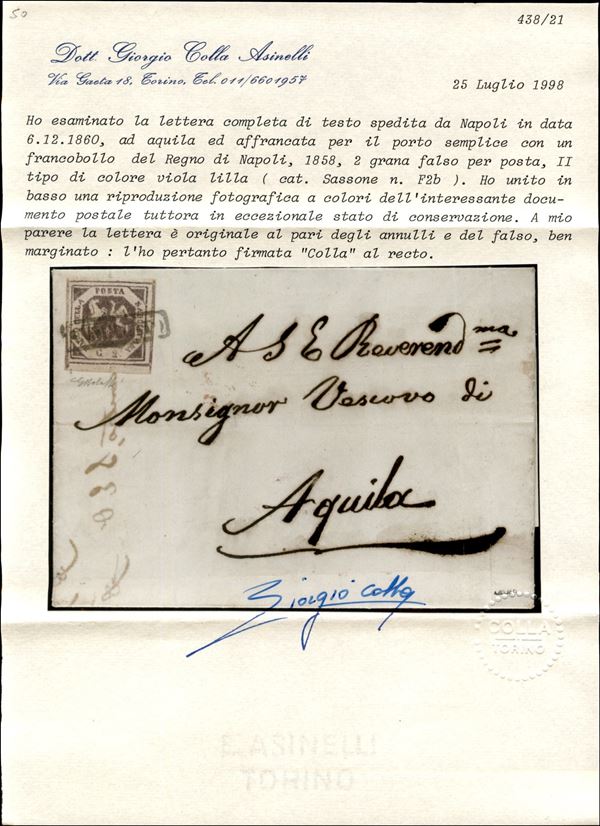 50
438/21
Dott. Giorgio Colla Asinelli
Via Gaeta 18, Torino, Tel. 011/6601957
25 Luglio 1998
Ho esaminato la lettera completa di testo spedita da Napoli in data
6.12.1860, ad aquila ed affrancata per il porto semplice con un
francobollo del Regno di Napoli, 1858, 2 grana falso per posta, II
tipo di colore viola lilla ( cat. Sassone n. F2b ). Ho unito in
basso una riproduzione fotografica a colori dell'interessante docu-
mento postale tuttora in eccezionale stato di conservazione. A mio
parere la lettera è originale al pari degli annulli e del falso, ben
marginato : l'ho pertanto firmata "Colla" al recto.
POSTA
G. 2.
A S E Reverend ma
Monsignor Vescovo di
Aquila
Giorgio Colla
COLLA
TORINO
E. ASINELLI
TORINO